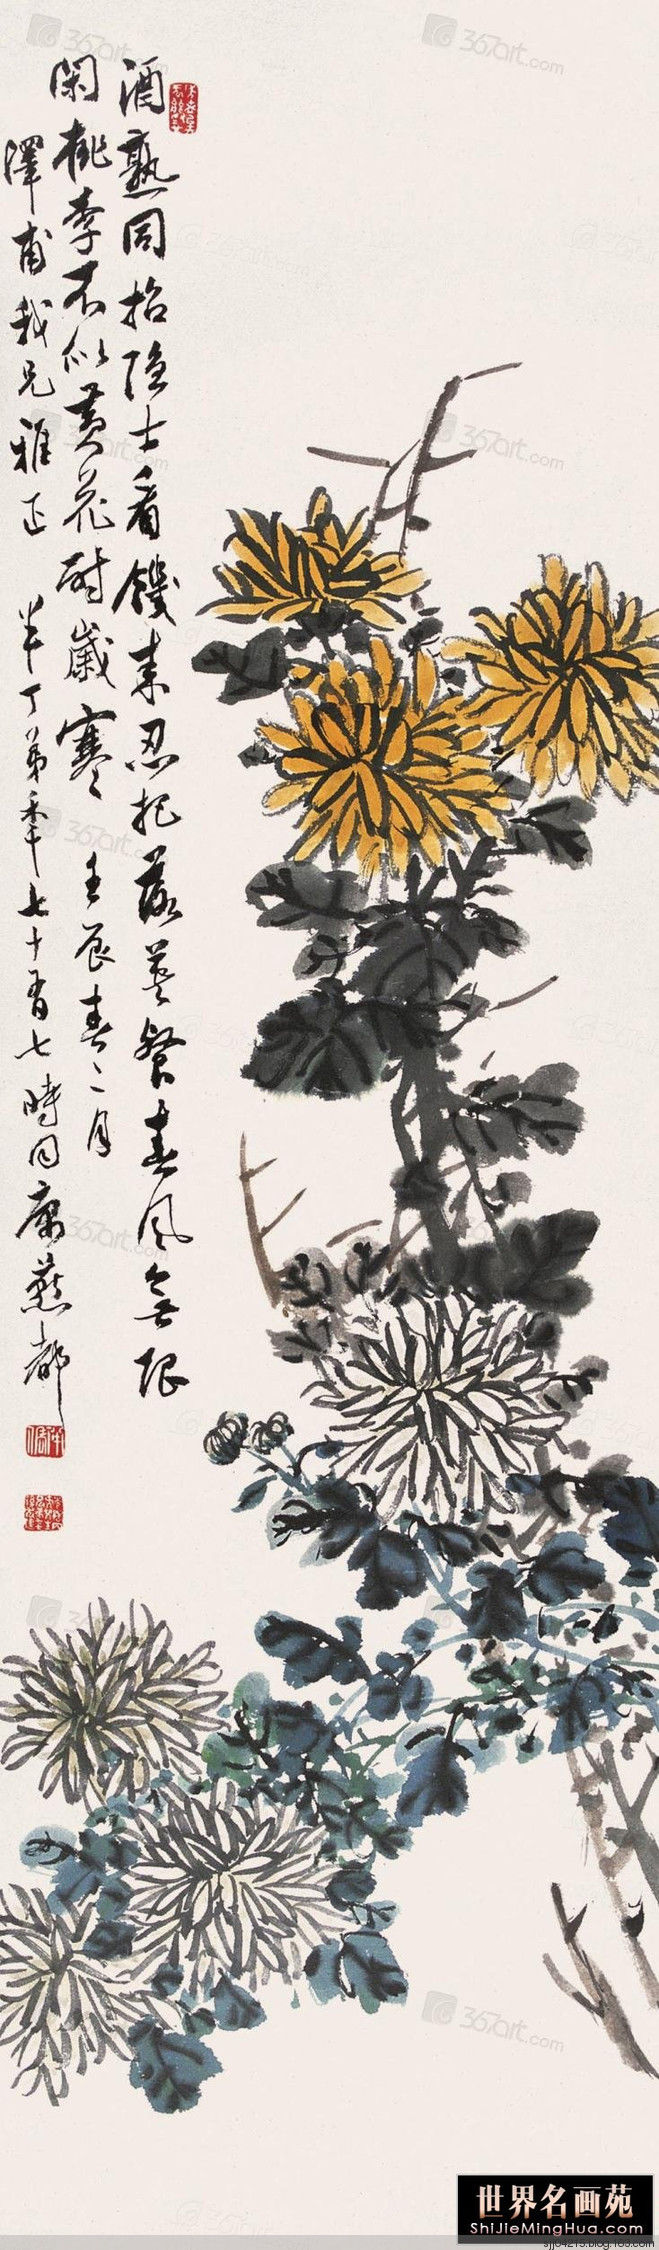 酒熟同招隐士看饑来忍把落英餐春風無限
閑桃李不似黄花耐歲寒 壬辰春二月
澤甫我兄雅正 半丁弟年七十有七時同寓燕都
367art.com
世界名画苑
ShiJieMingHua.com